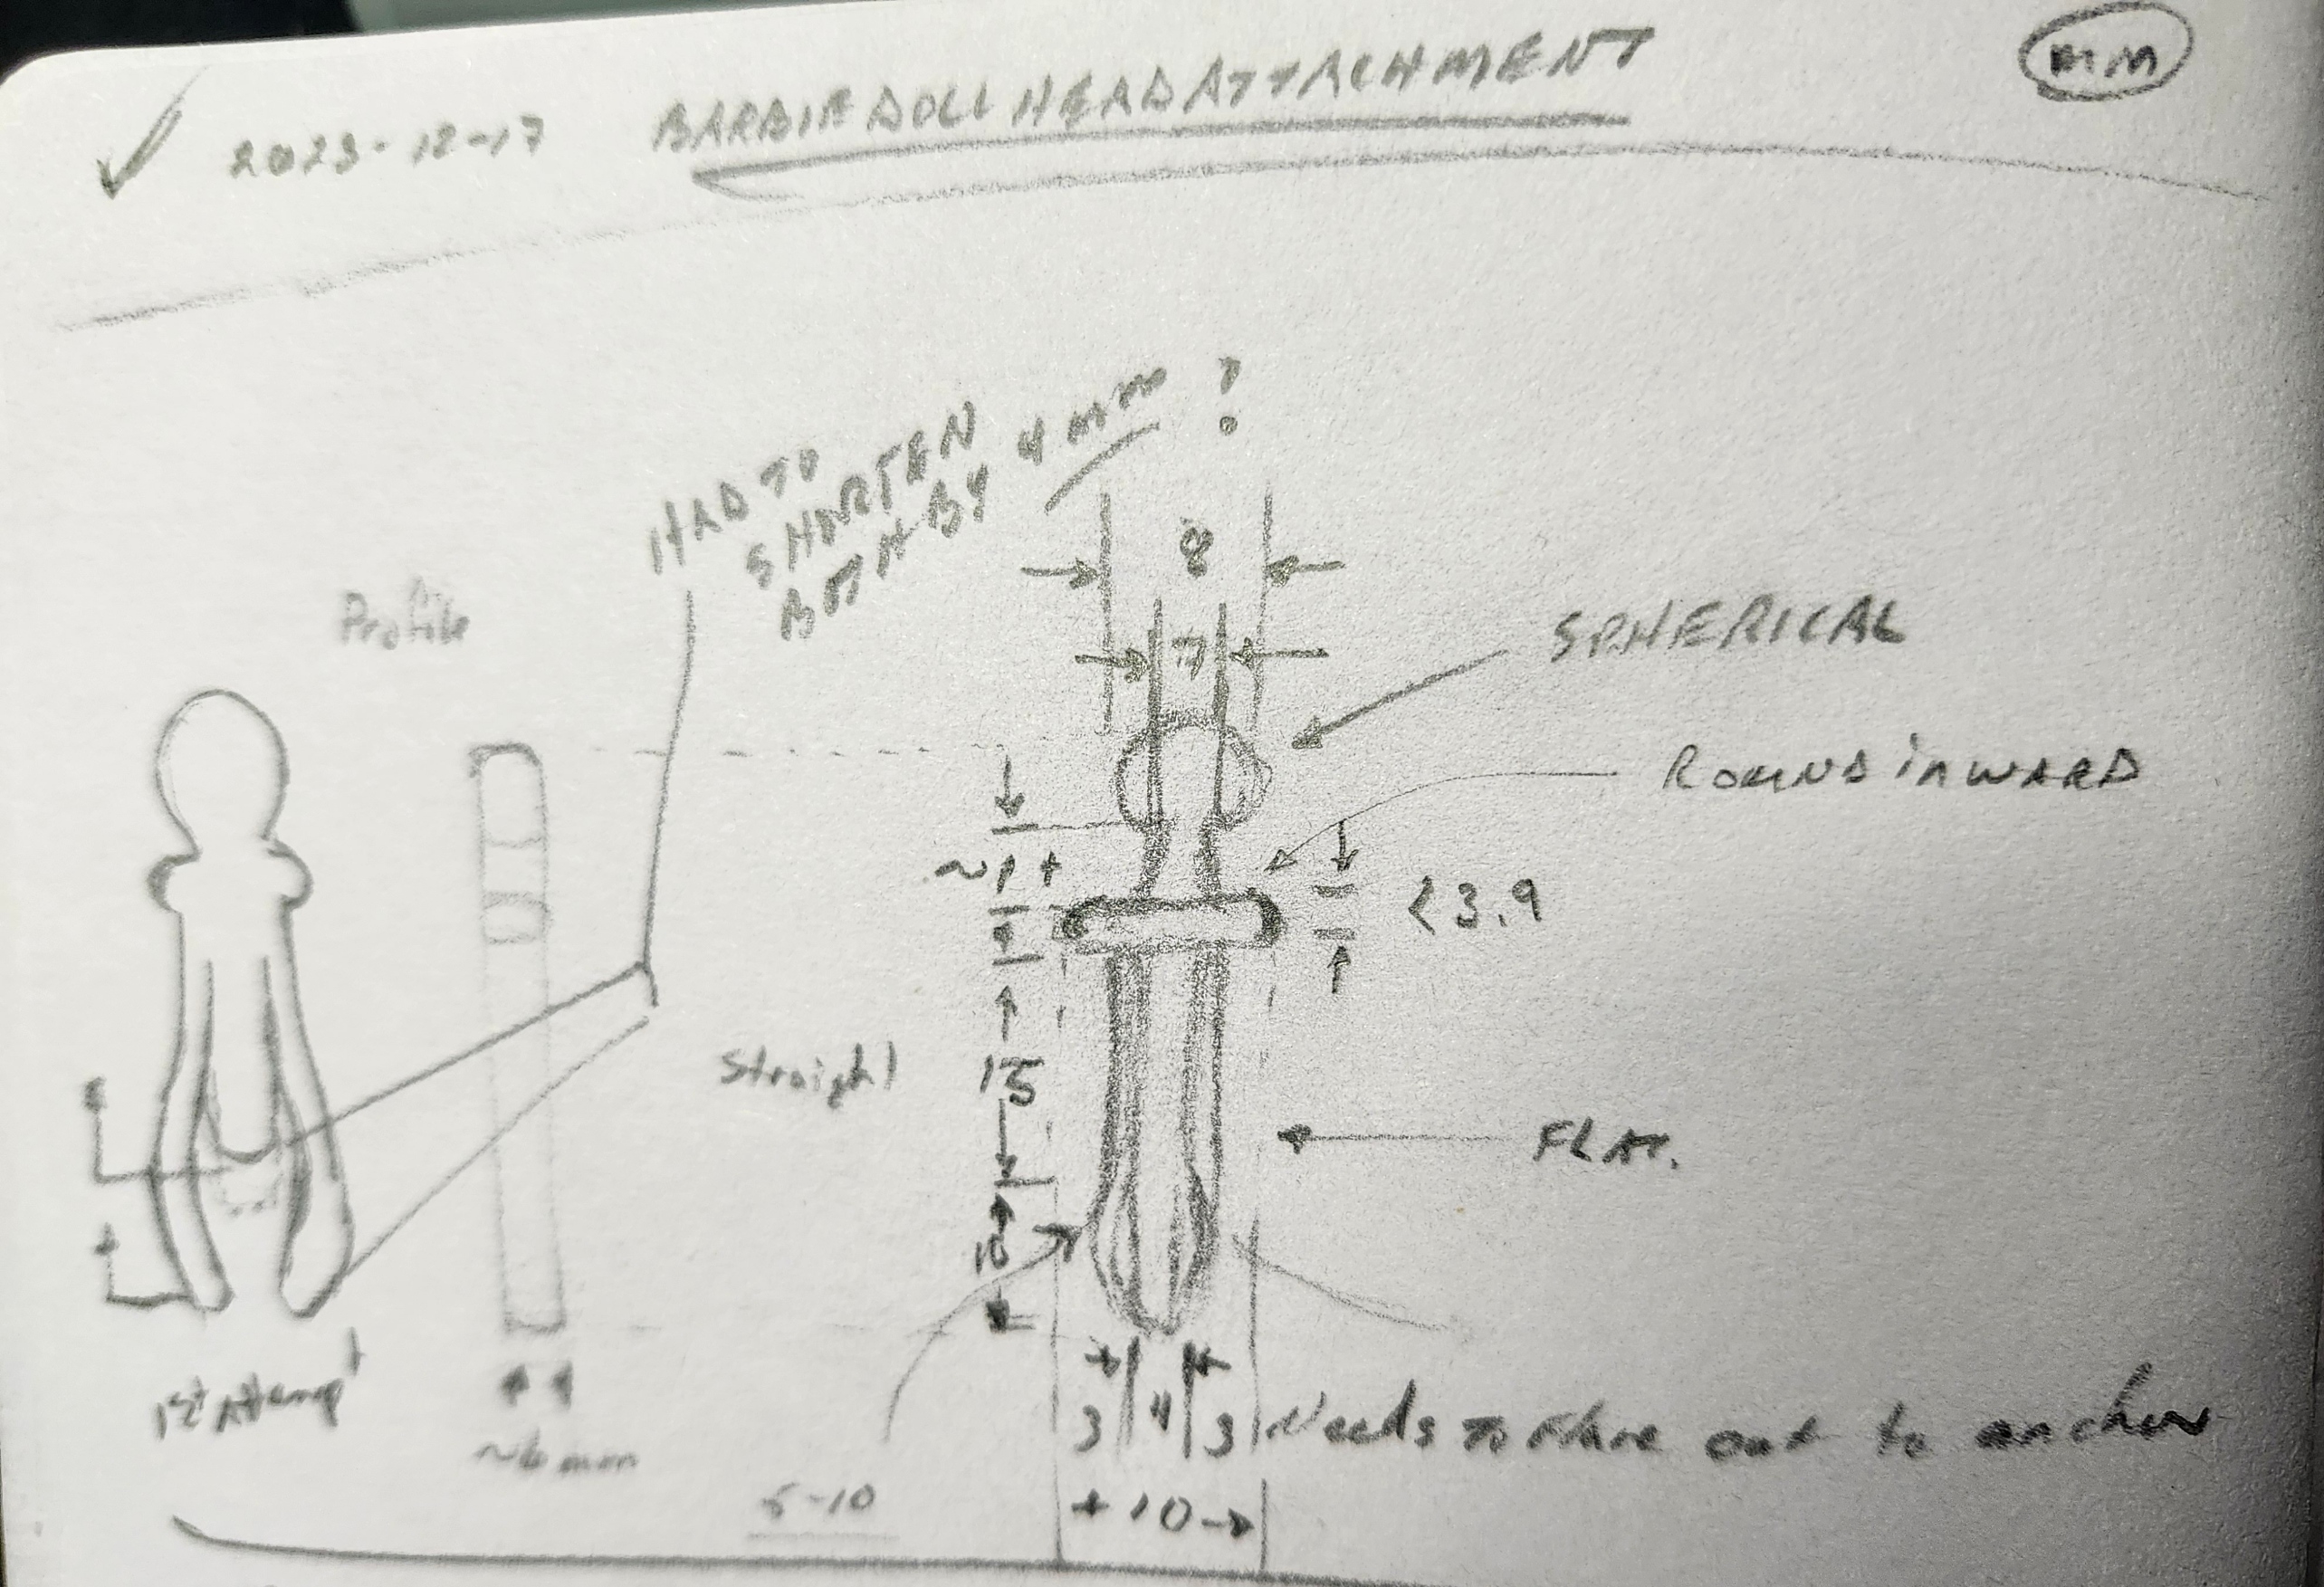 2023-12-17 BARBIE DOLL HEAD ATTACHMENT
MM
HAD TO
SHORTEN
BOTH BY 4 mm
?
8
7
Profile
SPHERICAL
ROUND iNWARD
~1+
<3.9
Straight
15
FLAT.
10
1st Attempt
~6 mm
3 4 3
Needs To Flare out to anchor
5-10
10